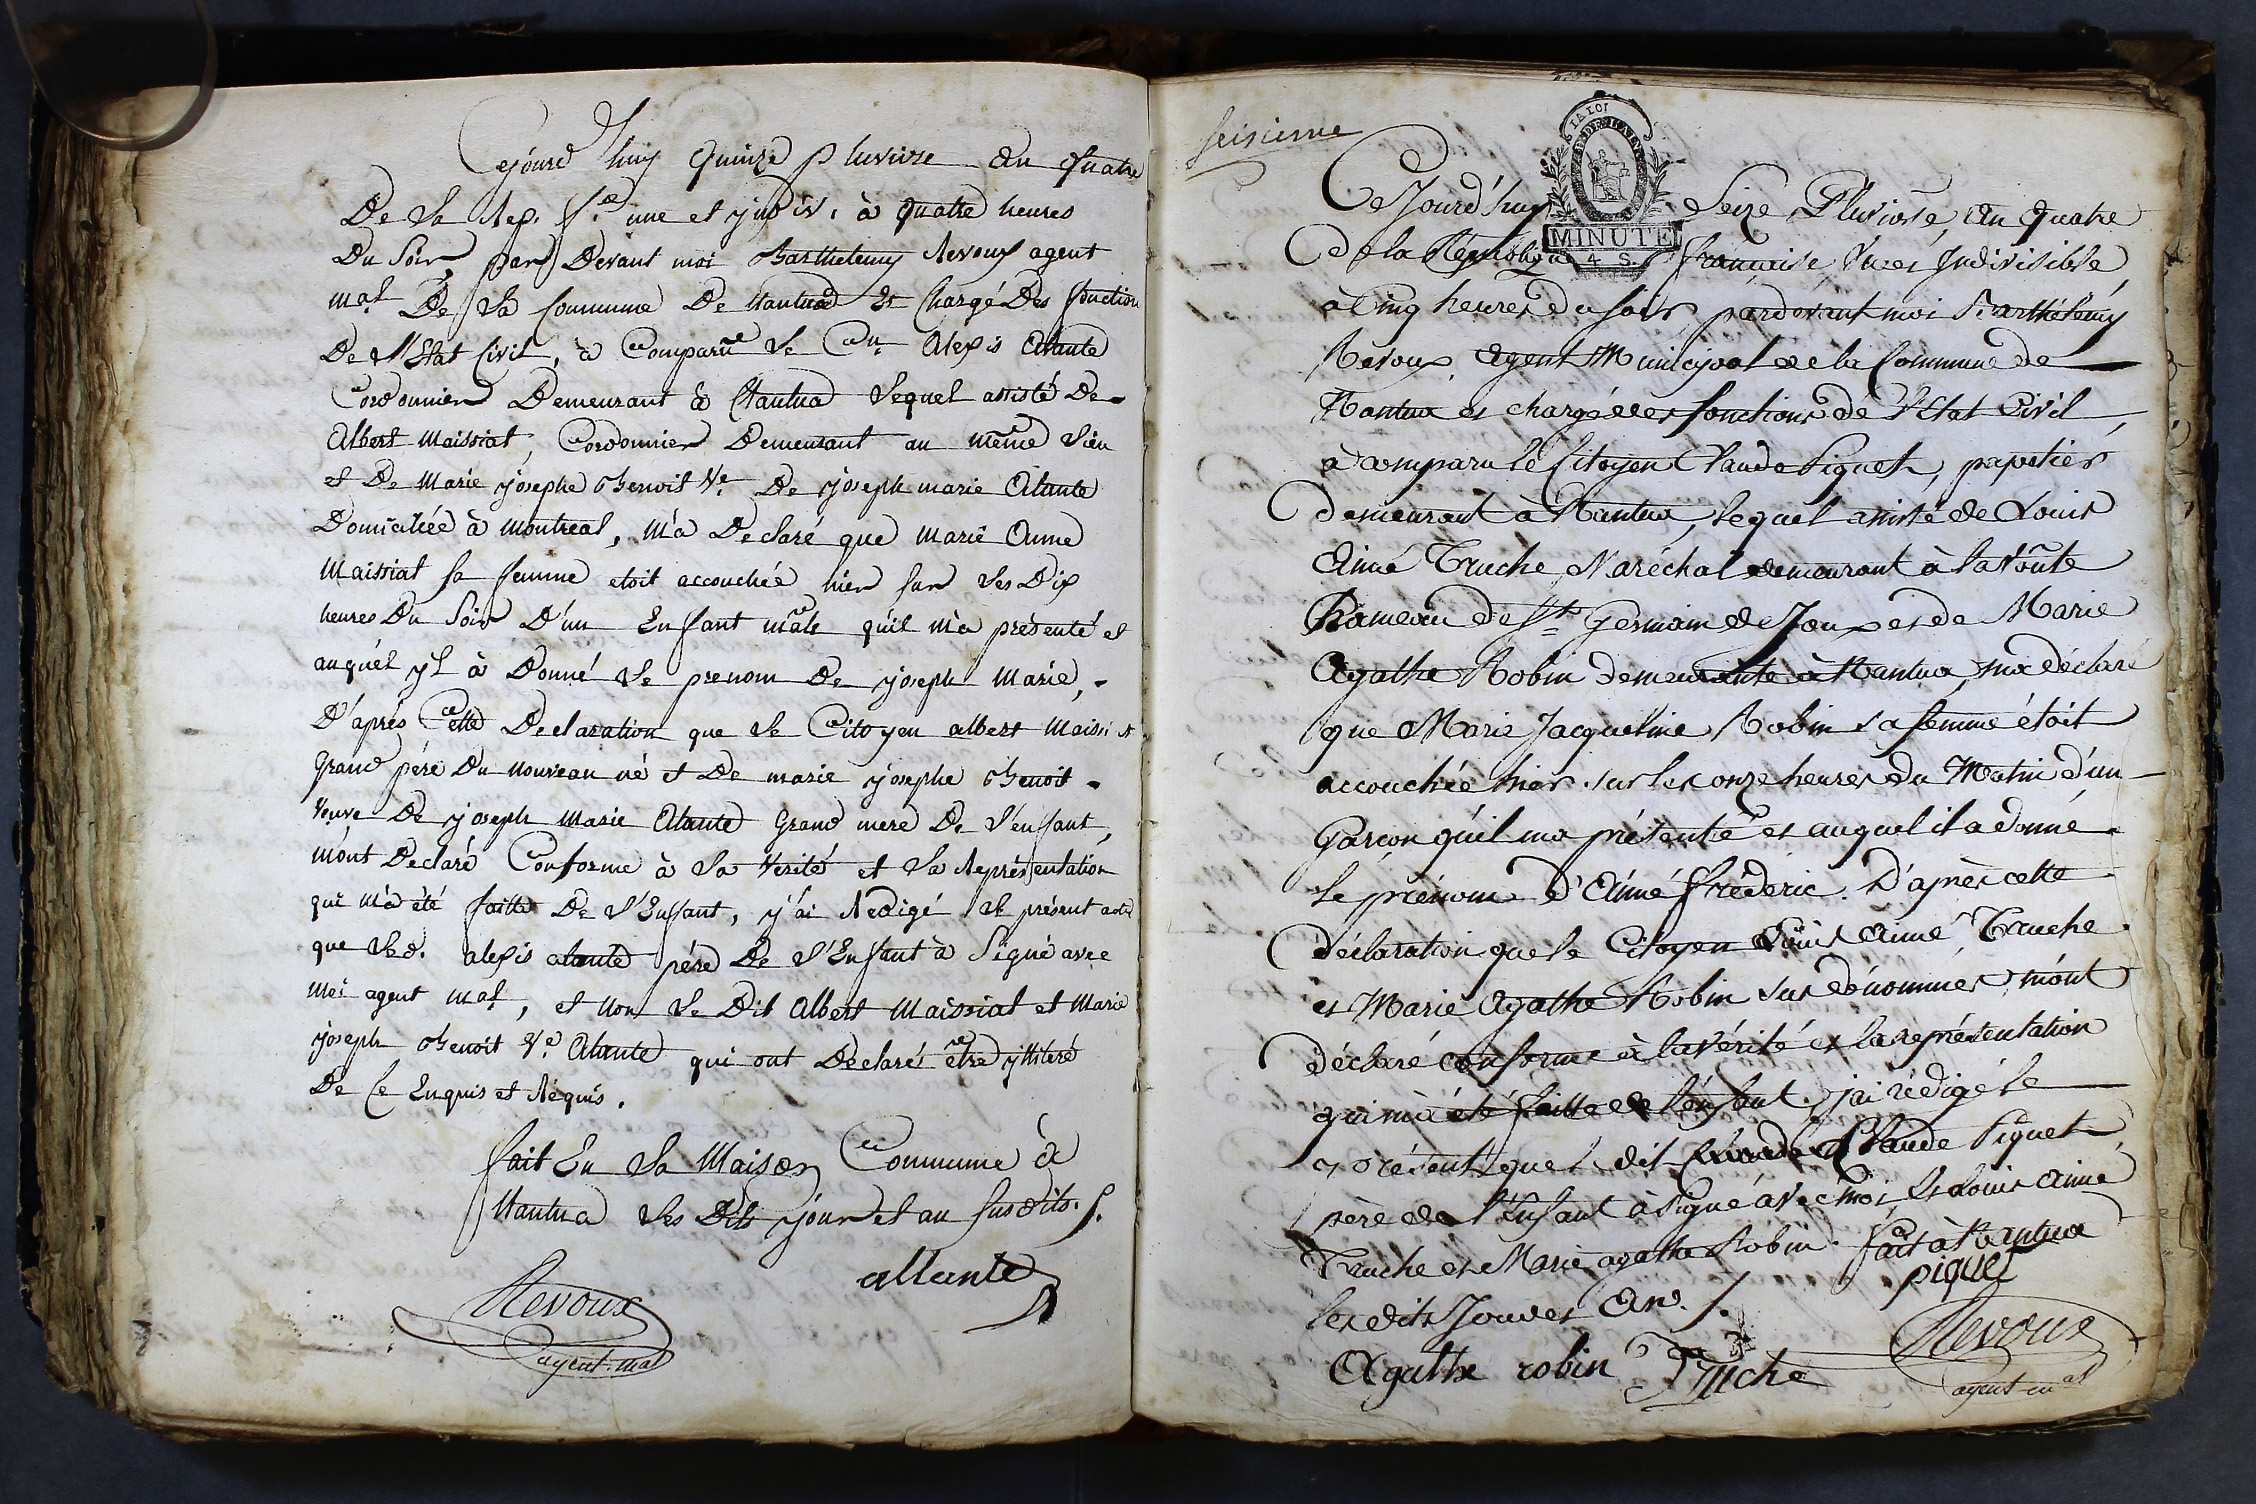 Cejourd'huy Quinze pluviose an Quatre
De la Rep. f.se une et yndiv. à quatre heures
Du Soir, par Devant moi Barthelemy Revoux agent
m.al De la Commune De Nantua Et Chargé Des fonction
De l'Etat Civil, à Comparu le C.en Alexis Alante
Cordonnier Demeurant à Nantua lequel assisté De
Albert Maissiat, Cordonnier Demeurant au même lieu
et De Marie josephe Benoit V.e De joseph marie Alante
Domiciliée à montreal, m'à Declaré que marie Anne
Maissiat sa femme etoit accouchée hier sur les Dix
heures Du Soir D'un Enfant mâle qu'il m'à présenté et
auquel yl à Donné le prenom De joseph Marie,
D'aprés Cette Declaration que le Citoyen albert Maissiat
Grand pére Du nouveau né et De marie josephe Benoit
Veuve De joseph Marie Alante Grand mere De l'enfant,
m'ont Declaré Conforme à la Verité et la Représentation
qui m'à été faitte De l'Enfant, j'ai Redigé le présent acte
que led. alexis alante pére De l'Enfant à Signé avec
moi agent m.al, et non le Dit Albert Maissiat et Marie
joseph Benoit V.e Alante qui ont Declarés être yllitéré
De Ce Enquis et Réquis.
fait En la Maison Commune à
Nantua les Dits jour et an susdits.
allante
Revoux
agent. mal
seisieme
LA LOI
MINUTE
4 S.
Cejourd'huy Seize Pluviose, An quatre
de la République française Une et Indivisible
à Cinq heures du soir, pardevant moi Barthélémy
Revoux, Agent Municipal de la Commune de
Nantua et chargé des fonctions de l'Etat Civil
à comparu le Citoyen Claude Piquet, papetier
demeurant à Nantua, lequel assisté de Louis
Aimé Truche Maréchal demeurant à la Voûte
hameau de St Germain de Joux et de Marie
Agathe Robin demeurante à Nantua, m'a déclaré
que Marie Jacqueline Robin sa femme étoit
accouchée hier sur les onze heures du Matin d'un
Garçon qu'il m'a présenté et auquel il a donné
le prénom d'Aimé fréderic. D'après cette
déclaration que le Citoyen Louis Aimé Truche
et Marie Agathe Robin susdénommés m'ont
déclaré conforme à la vérité et la représentation
qui m'a été faitte de l'énfant, j'ai rédigé le
présent que le dit Claude Piquet
père de l'Enfant à signé avec moi, les Louis Aimé
Truche et Marie agathe Robin. fait à Nantua
les dits Jour et An.
piquet
Revoux
agent mal
Agathe robin Truche